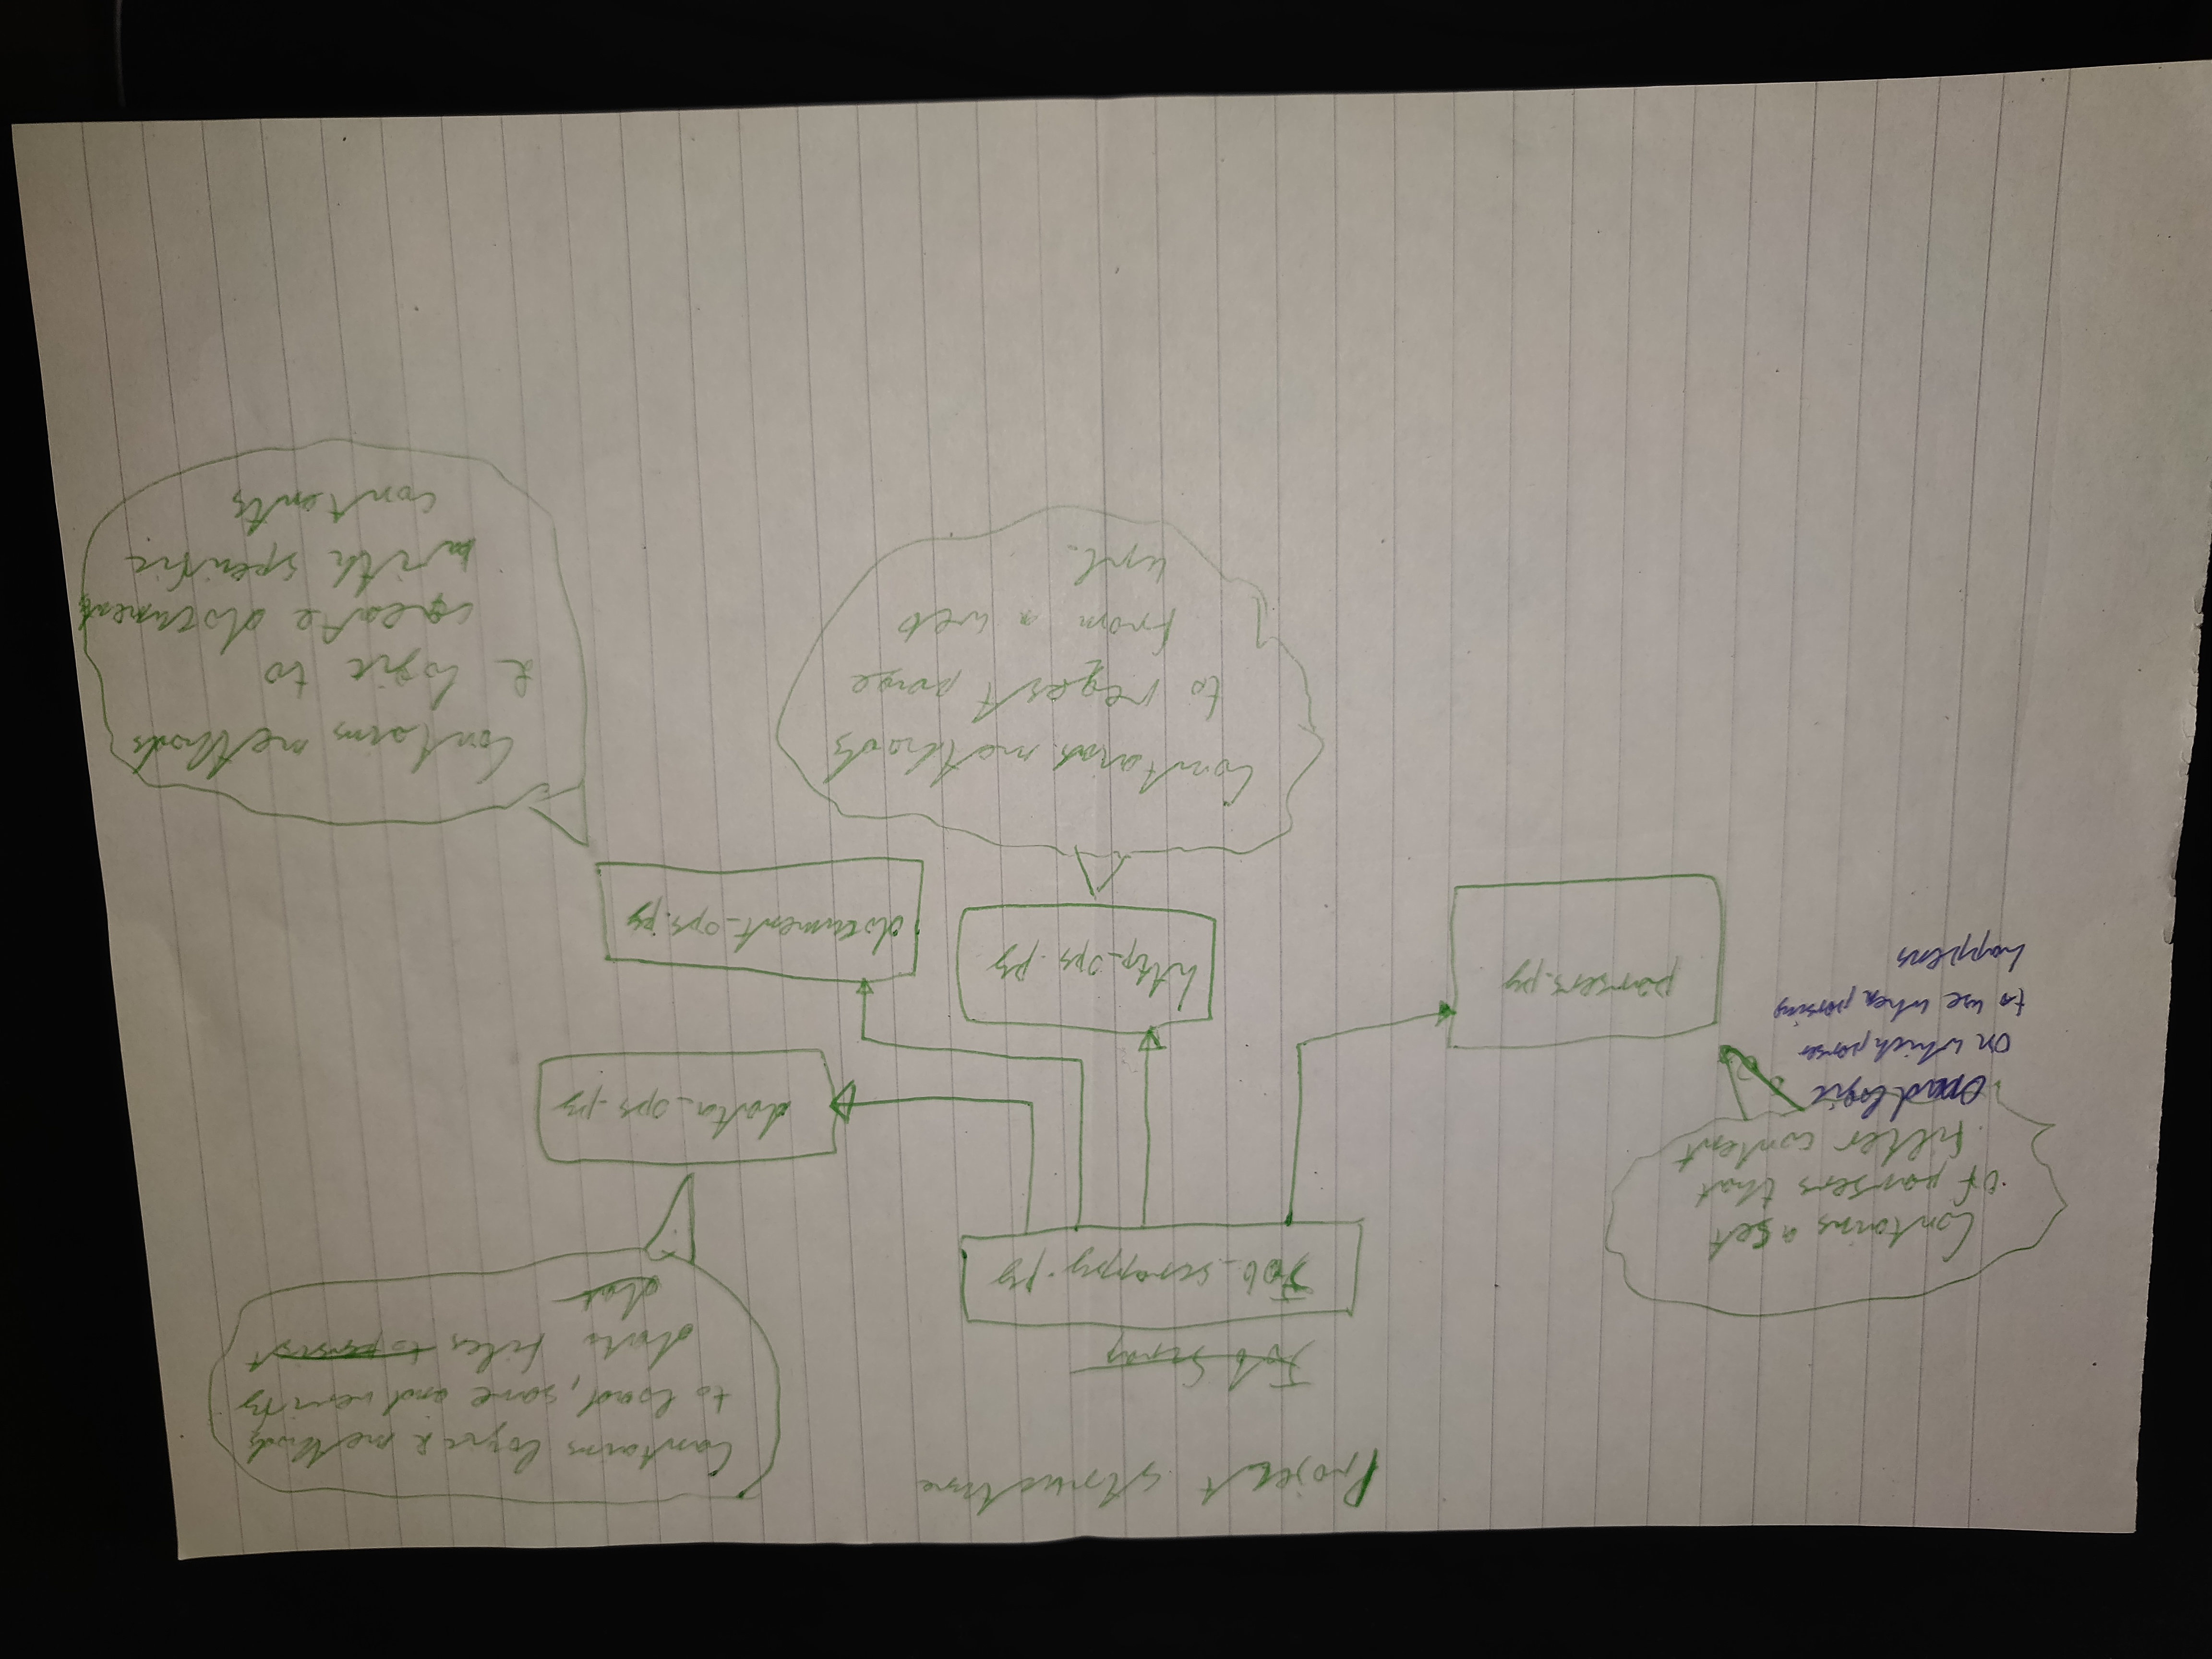 Project structure
Job Scrap
Job_scrappy.py
Contains logic & methods
to load, save and verify
data files to persist
dat
Contains a set
of parsers that
filter content
and logic
on which parser
to use when parsing
happens
data_ops.py
parsers.py
http_ops.py
document_ops.py
Contains methods
to reqest page
from a web
url.
Contains methods
& logic to
create documents
with specific
contents